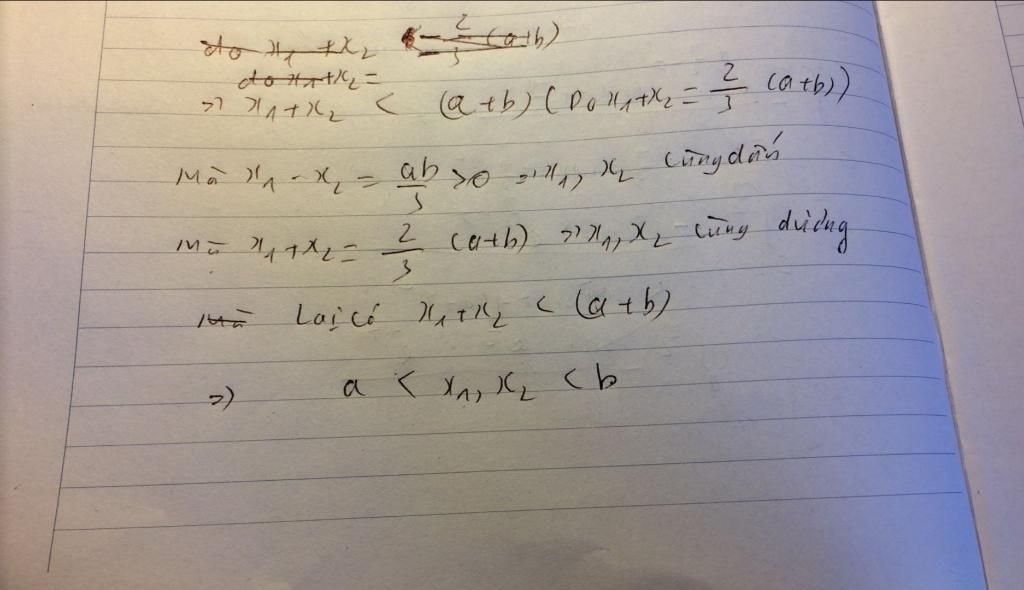 do x₁ + x₂ < 2/3 (a+b)
do x₁+x₂ =
=> x₁+x₂ < (a+b) ( Do x₁+x₂ = 2/3 (a+b))
Mà x₁ - x₂ = ab/3 >0 => x₁, x₂ cùng dấu
Mà x₁+x₂ = 2/3 (a+b) => x₁, x₂ cùng dương
Mà Lại có x₁+x₂ < (a+b)
=> a < x₁, x₂ < b